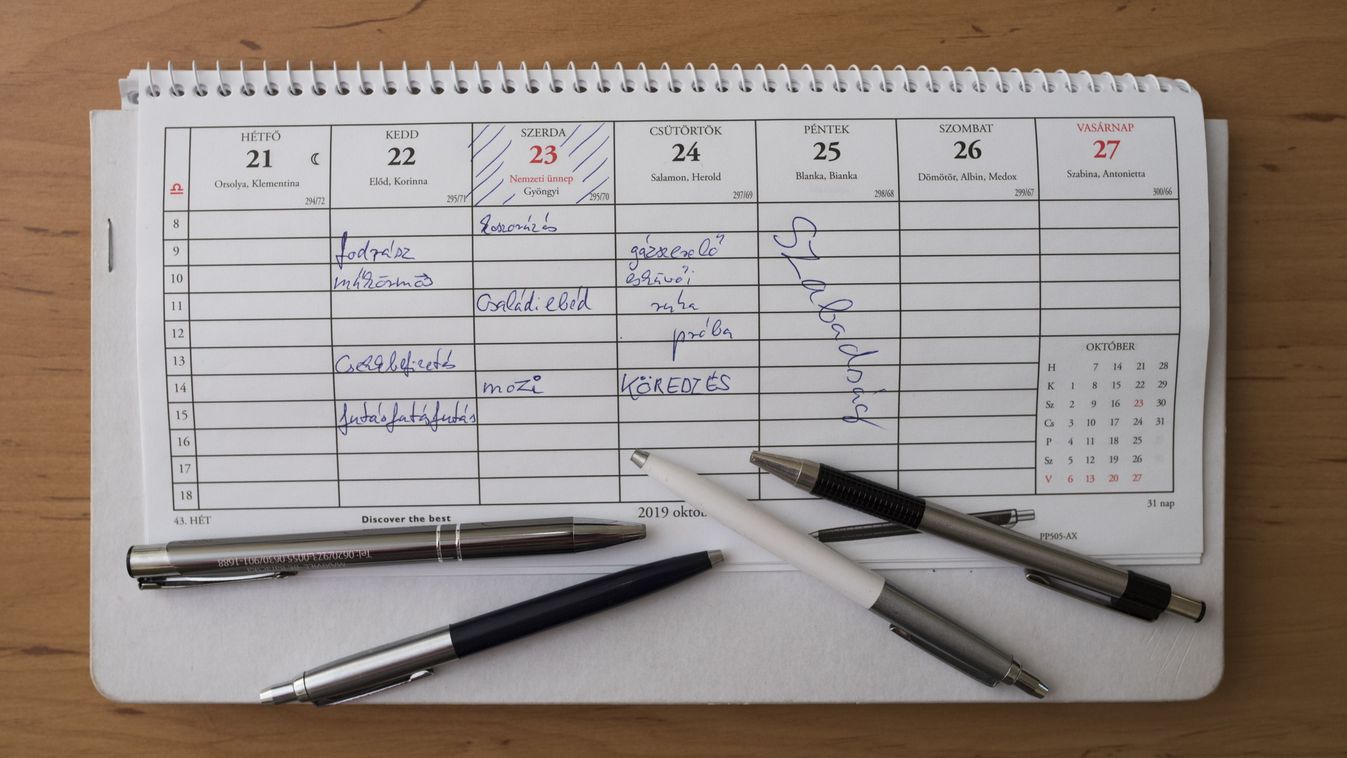 HÉTFŐ
21
Orsolya, Klementina
294/72
KEDD
22
Előd, Korinna
295/71
SZERDA
23
Nemzeti ünnep
Gyöngyi
295/70
CSÜTÖRTÖK
24
Salamon, Herold
297/69
PÉNTEK
25
Blanka, Bianka
298/68
SZOMBAT
26
Dömötör, Albin, Medox
299/67
VASÁRNAP
27
Szabina, Antonietta
300/66
8
9
10
11
12
13
14
15
16
17
18
fodrász
műkörmös
Csekkbefizetés
futásfutásfutás
koszorúzás
Családi ebéd
mozi
gázszerelő
esküvői
ruha
próba
KÖREDZÉS
Szabadság
OKTÓBER
H 7 14 21 28
K 1 8 15 22 29
Sz 2 9 16 23 30
Cs 3 10 17 24 31
P 4 11 18 25
Sz 5 12 19 26
V 6 13 20 27
43. HÉT
Discover the best
2019 októb
31 nap
PP505-AX